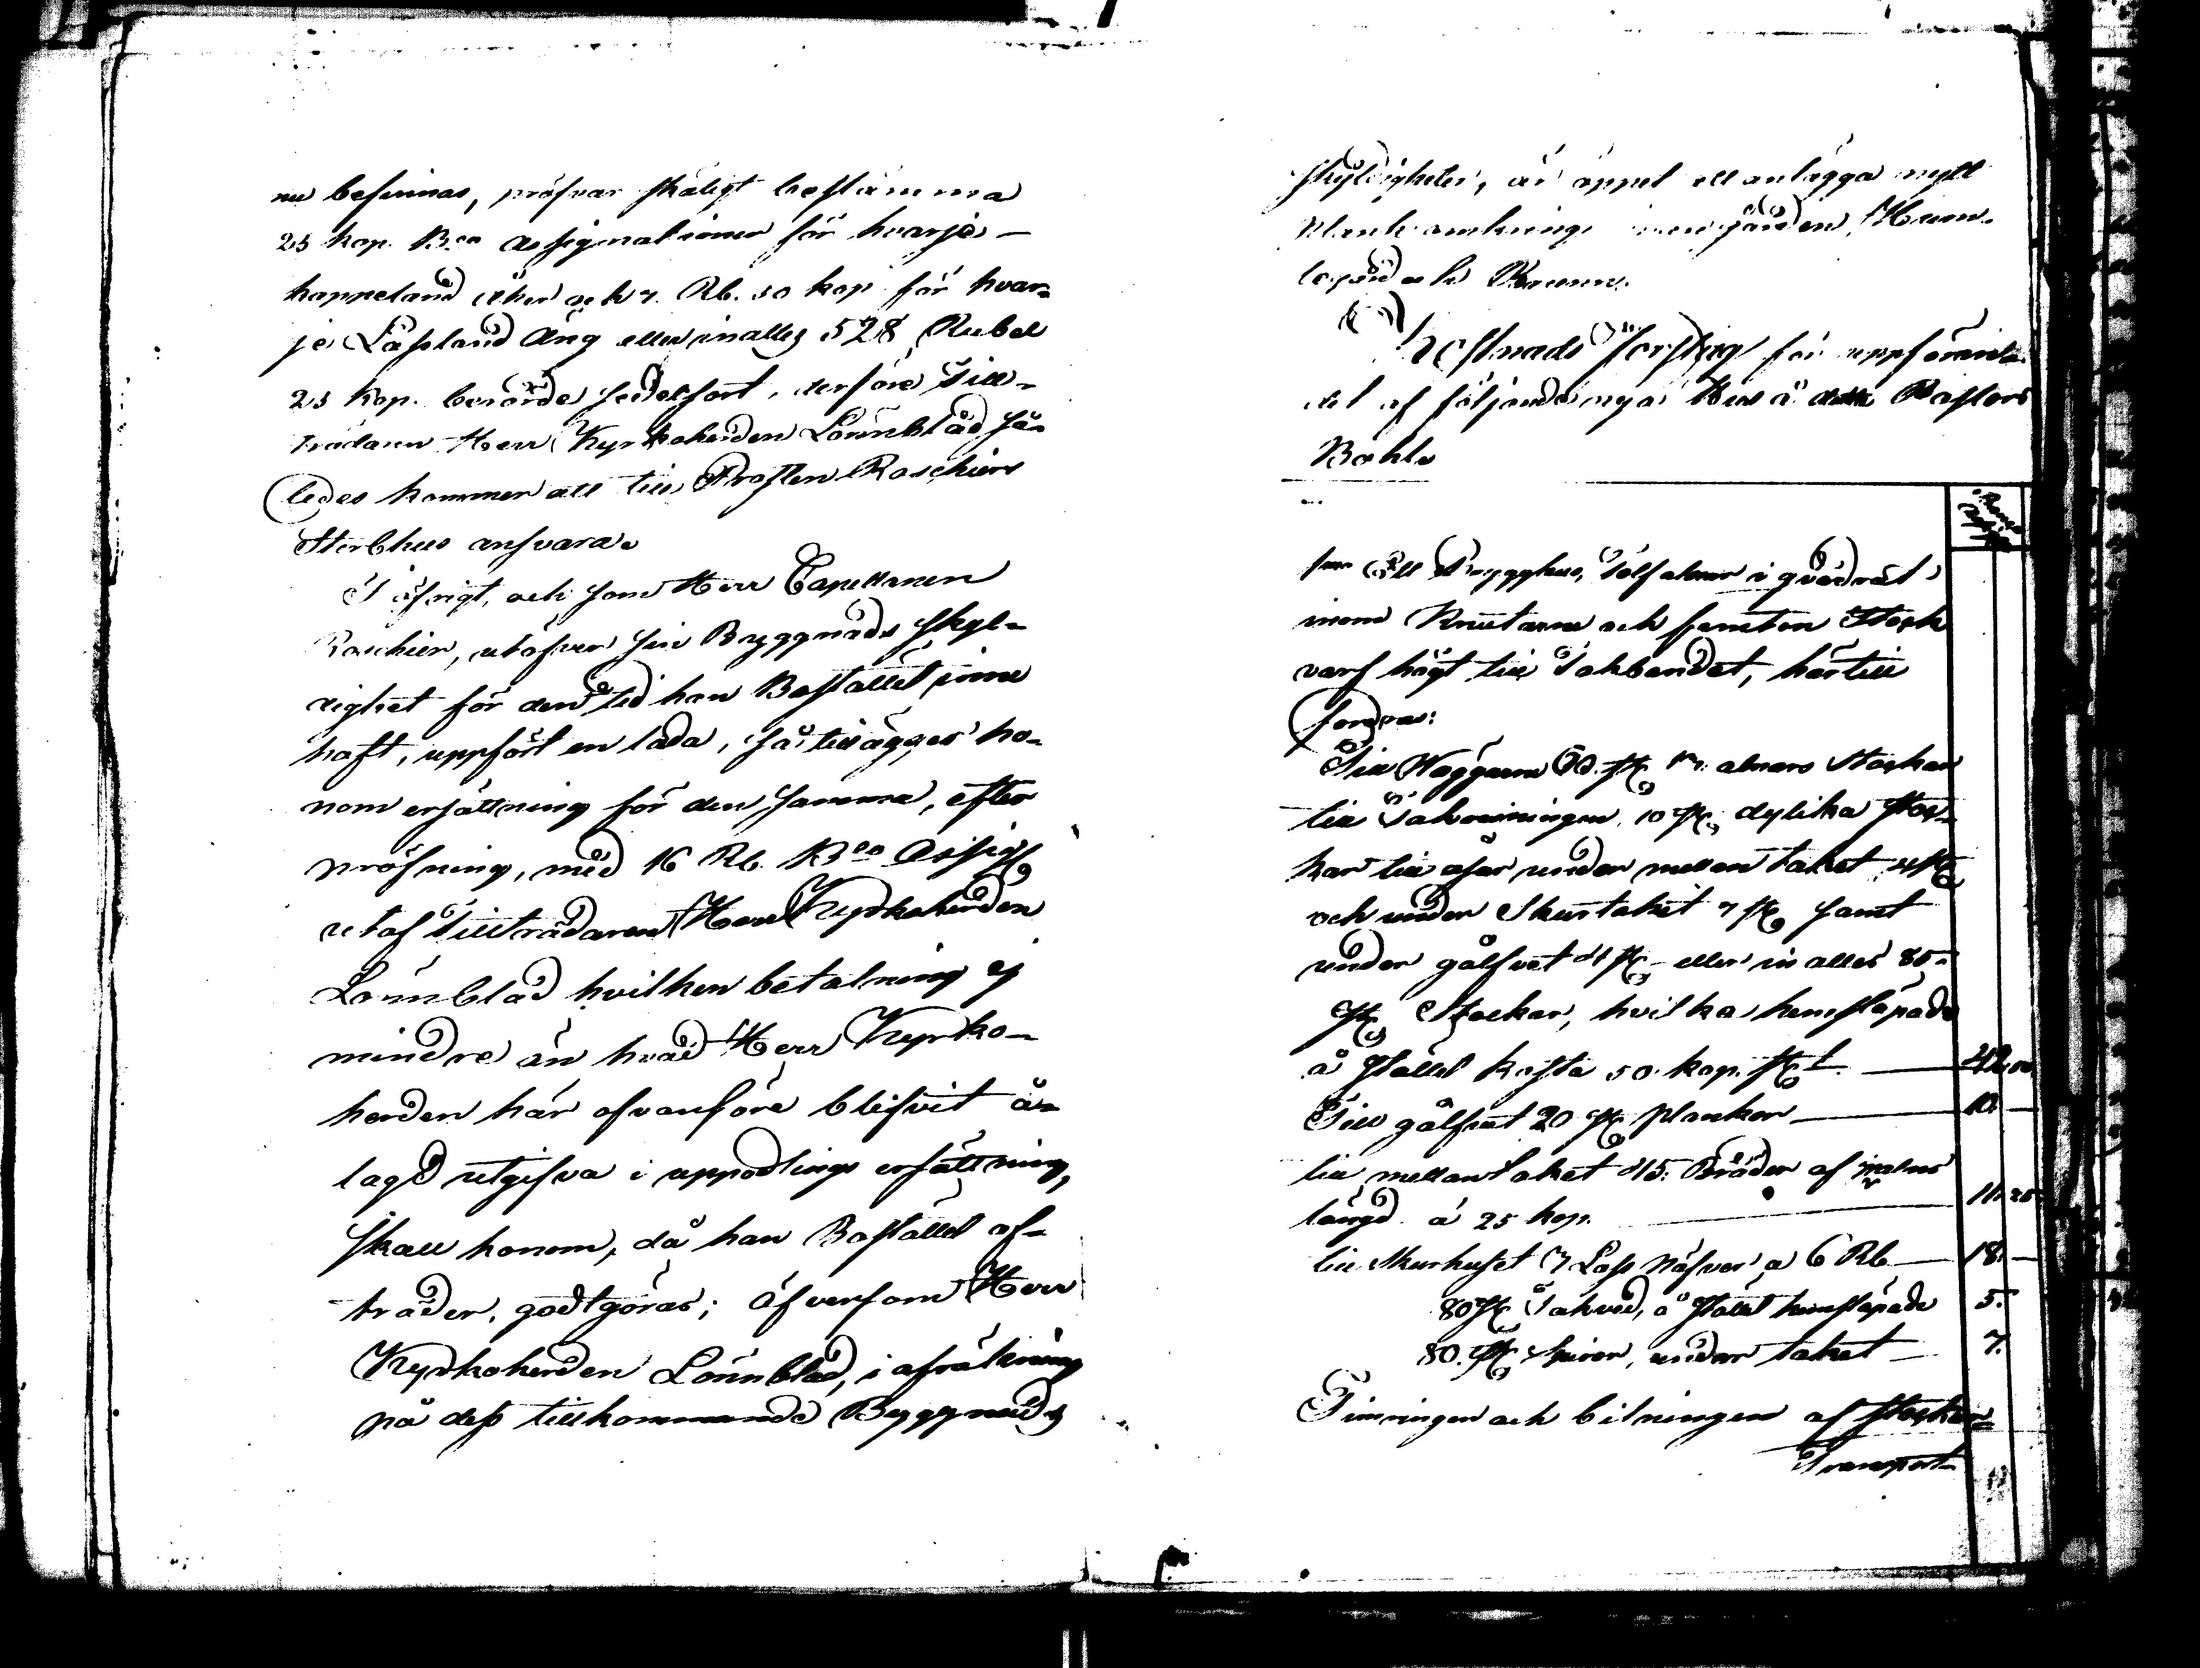 nu befinnas, pröfvar skäligt bestämma
25 kop. B:co Assignationer för hvarje
kappeland åker och 7. Rb. 50 kop för hvar=
je Lassland Äng eller inalles 528 Rubel
25 kop. berörde sedelsort, derföre Till=
trädaren Herr Kyrkoherden Lönnblad så=
ledes kommer att till Prosten Roschiers
Sterbhus ansvara.
I öfrigt, och som Herr Capellanen
Roschier, utöfver sin Byggnads skyl=
dighet för den tid han Bostället inne
haft, uppfört en lada, så tillägges ho=
nom ersättning för den samma, efter
pröfning, med 16 Rb. B:co Assign
utaf Tillträdaren Herr Kyrkoherden
Lönnblad hvilken betalning ej
mindre än hvad Herr Kyrko=
herden här ofvanföre blifvit å=
lagd utgifva i uppodlings ersättning,
skall honom, då han Bostället af=
träder, godtgöras; äfversom Herr
Kyrkoherden Lönnblad, i afräkning
på dess tillkommande Byggnads
skyldigheter, är öppet att anlägga nytt
Plank omkring gården, Hum=
legård och Brunn.
Kostnads Förslag för uppförande
det af följande nya Hus å detta Pastors
Bohl.
Ett Brygghus, Tolf alnar i qvadrat
inom Knutarna och femton Stock
varf högt till Takbandet, härtill
fordras:
Till Väggarna 60. st. alnars Stockar
till Takresningen 10 st. dylika stoc=
kar till åsar under mellan taket 4 st
och under Skurtaket 7 st. samt
under gålfvet 4 st. eller in alles 85.
st. Stockar, hvilka hemsläpade
å stället kosta 50. kop. st. 42. 50.
Till gålfvet 20 st. plankor 10. —
till mellantaket 45. Bräder af alnars
längd á 25 kop. 11. 25.
till Skurhuset 3 Lass Näfver, a 6 Rb 18. —
80 st. Takved, å stället hemsläpade 5.
80. st. under taket 7.
Timringen och bilningen af stockar=
Transport